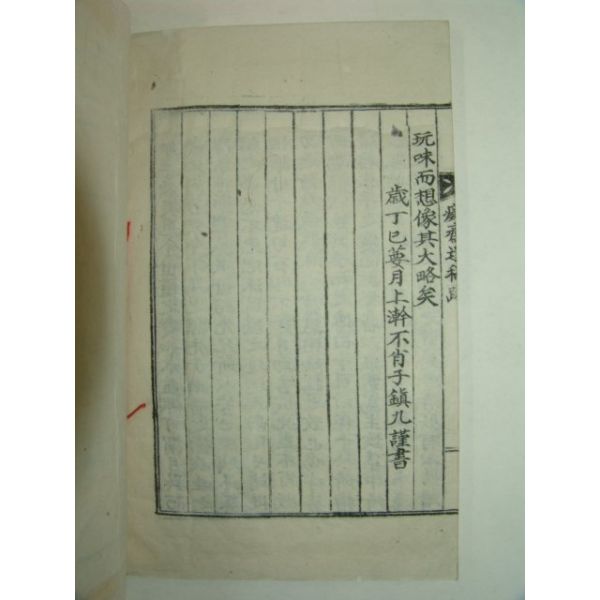 齋遺稿跋
玩味而想像其大略矣
歲丁巳葽月上澣不肖子鎭九謹書